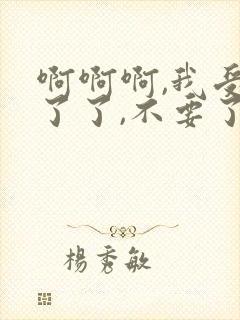 啊啊啊,我受
了了,不要了
楊秀敏